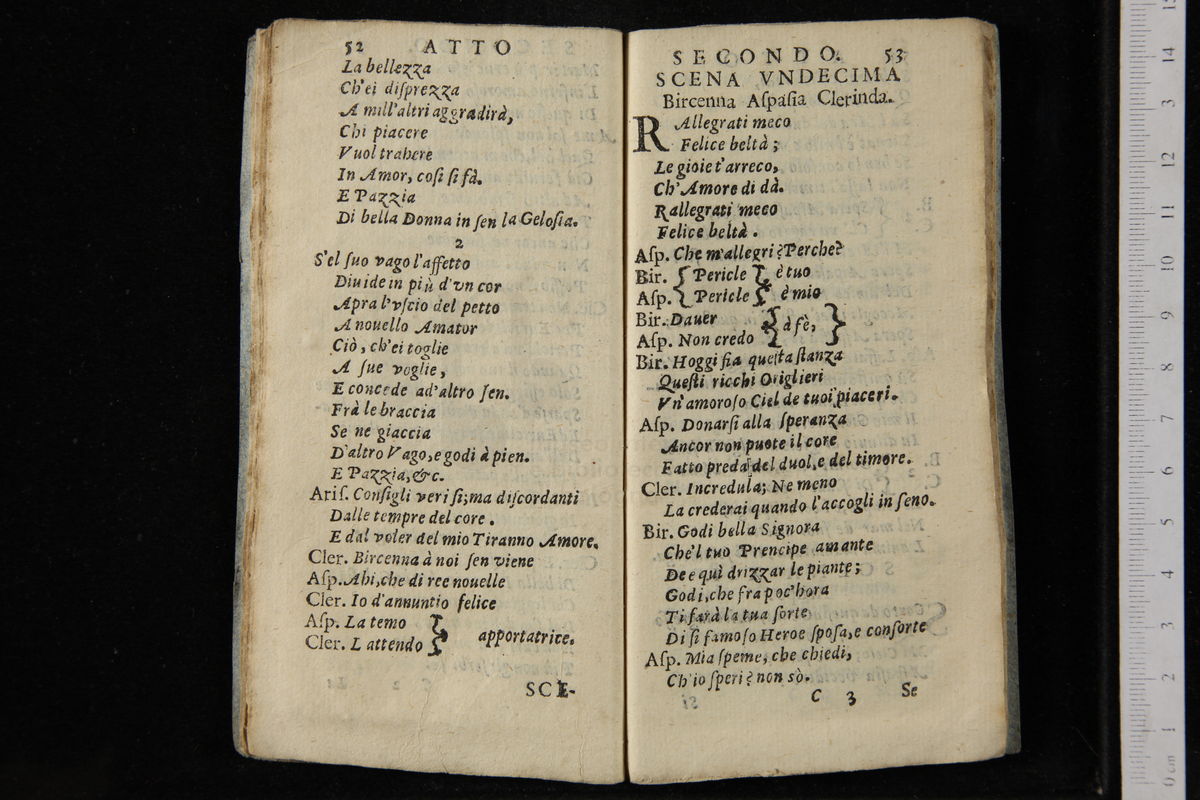 52 ATTO
La bellezza
Ch'ei disprezza
A mill'altri aggradirà,
Chi piacere
Vuol trahere
In Amor, cosi si fà.
E Pazzia
Di bella Donna in sen la Gelosia.
2
S'el suo vago l'affetto
Diuide in più d'vn cor
Apra l'vscio del petto
A nouello Amator
Ciò, ch'ei toglie
A sue voglie,
E concede ad'altro sen.
Frà le braccia
Se ne giaccia
D'altro Vago, e godi à pien.
E Pazzia, &c.
Aris. Consigli veri si; ma discordanti
Dalle tempre del core.
E dal voler del mio Tiranno Amore.
Cler. Bircenna à noi sen viene
Asp. Ahi, che di ree nouelle
Cler. Io d'annuntio felice
Asp. La temo } apportatrice.
Cler. L attendo }
SCE-
SECONDO. 53
SCENA VNDECIMA
Bircenna Aspasia Clerinda.
RAllegrati meco
Felice beltà;
Le gioie t'arreco,
Ch'Amore di dà.
Rallegrati meco
Felice beltà.
Asp. Che m'allegri? Perche?
Bir. { Pericle } è tuo
Asp. { Pericle } è mio
Bir. Dauer } à fè, }
Asp. Non credo }
Bir. Hoggi fia questa stanza
Questi ricchi Origlieri
Vn'amoroso Ciel de tuoi piaceri.
Asp. Donarsi alla speranza
Ancor non puote il core
Fatto preda del duol, e del timore.
Cler. Incredula; Ne meno
La crederai quando l'accogli in seno.
Bir. Godi bella Signora
Che'l tuo Prencipe amante
Dee quì drizzar le piante;
Godi, che fra poc'hora
Ti farà la tua sorte
Di si famoso Heroe sposa, e consorte
Asp. Mia speme, che chiedi,
Ch'io speri? non sò.
C 3 Se